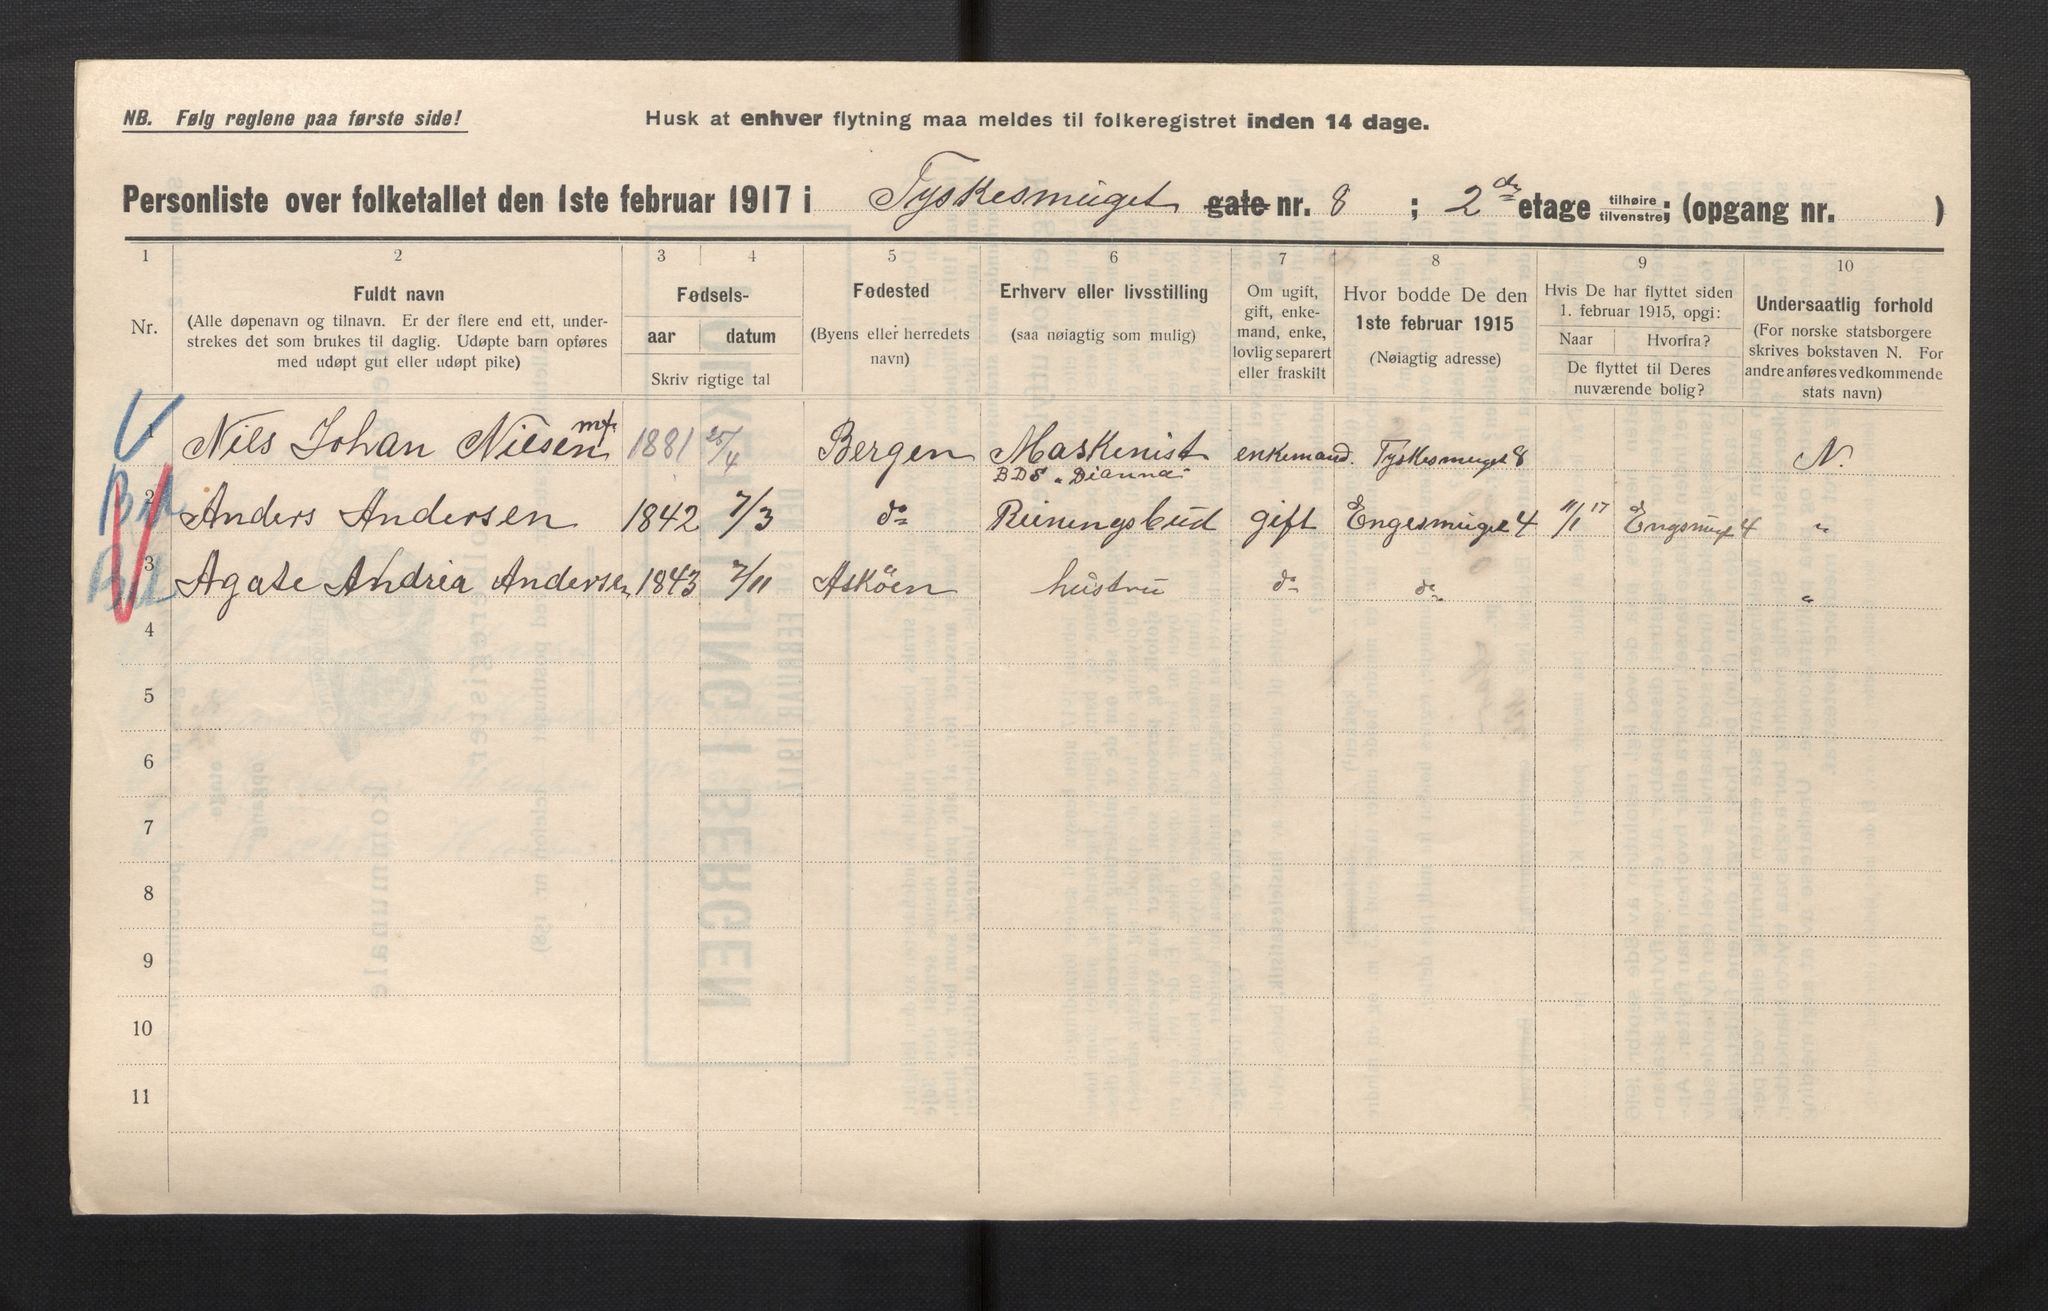 NB. Følg reglene paa første side!
Husk at enhver flytning maa meldes til folkeregistret inden 14 dage.
Personliste over folketallet den 1ste februar 1917 i Tyskesmuget gate nr. 8 ; 2den etage tilhøire tilvenstre; (opgang nr. )
1 2 3 4 5 6 7 8 9 10
Nr.
Fuldt navn
(Alle døpenavn og tilnavn. Er der flere end ett, under-
strekes det som brukes til daglig. Udøpte barn opføres
med udøpt gut eller udøpt pike)
Fødsels-
aar datum
Skriv rigtige tal
Fødested
(Byens eller herredets
navn)
Erhverv eller livsstilling
(saa nøiagtig som mulig)
Om ugift,
gift, enke-
mand, enke,
lovlig separert
eller fraskilt
Hvor bodde De den
1ste februar 1915
(Nøiagtig adresse)
Hvis De har flyttet siden
1. februar 1915, opgi:
Naar Hvorfra?
De flyttet til Deres
nuværende bolig?
Undersaatlig forhold
(For norske statsborgere
skrives bokstaven N. For
andre anføres vedkommende
stats navn)
1 Nils Johan Nilsen 1881 25/4 Bergen Maskenist enkemand. Tyskesmuget 8 N.
BDS "Dianna"
2 Anders Andersen 1842 7/3 do Reiningsbud gift Engesmuget 4 11/1 17 Engsmuget 4 "
3 Agate Andrea Andersen 1843 7/11 Askøen hustru do do "
4
5
6
7
8
9
10
11